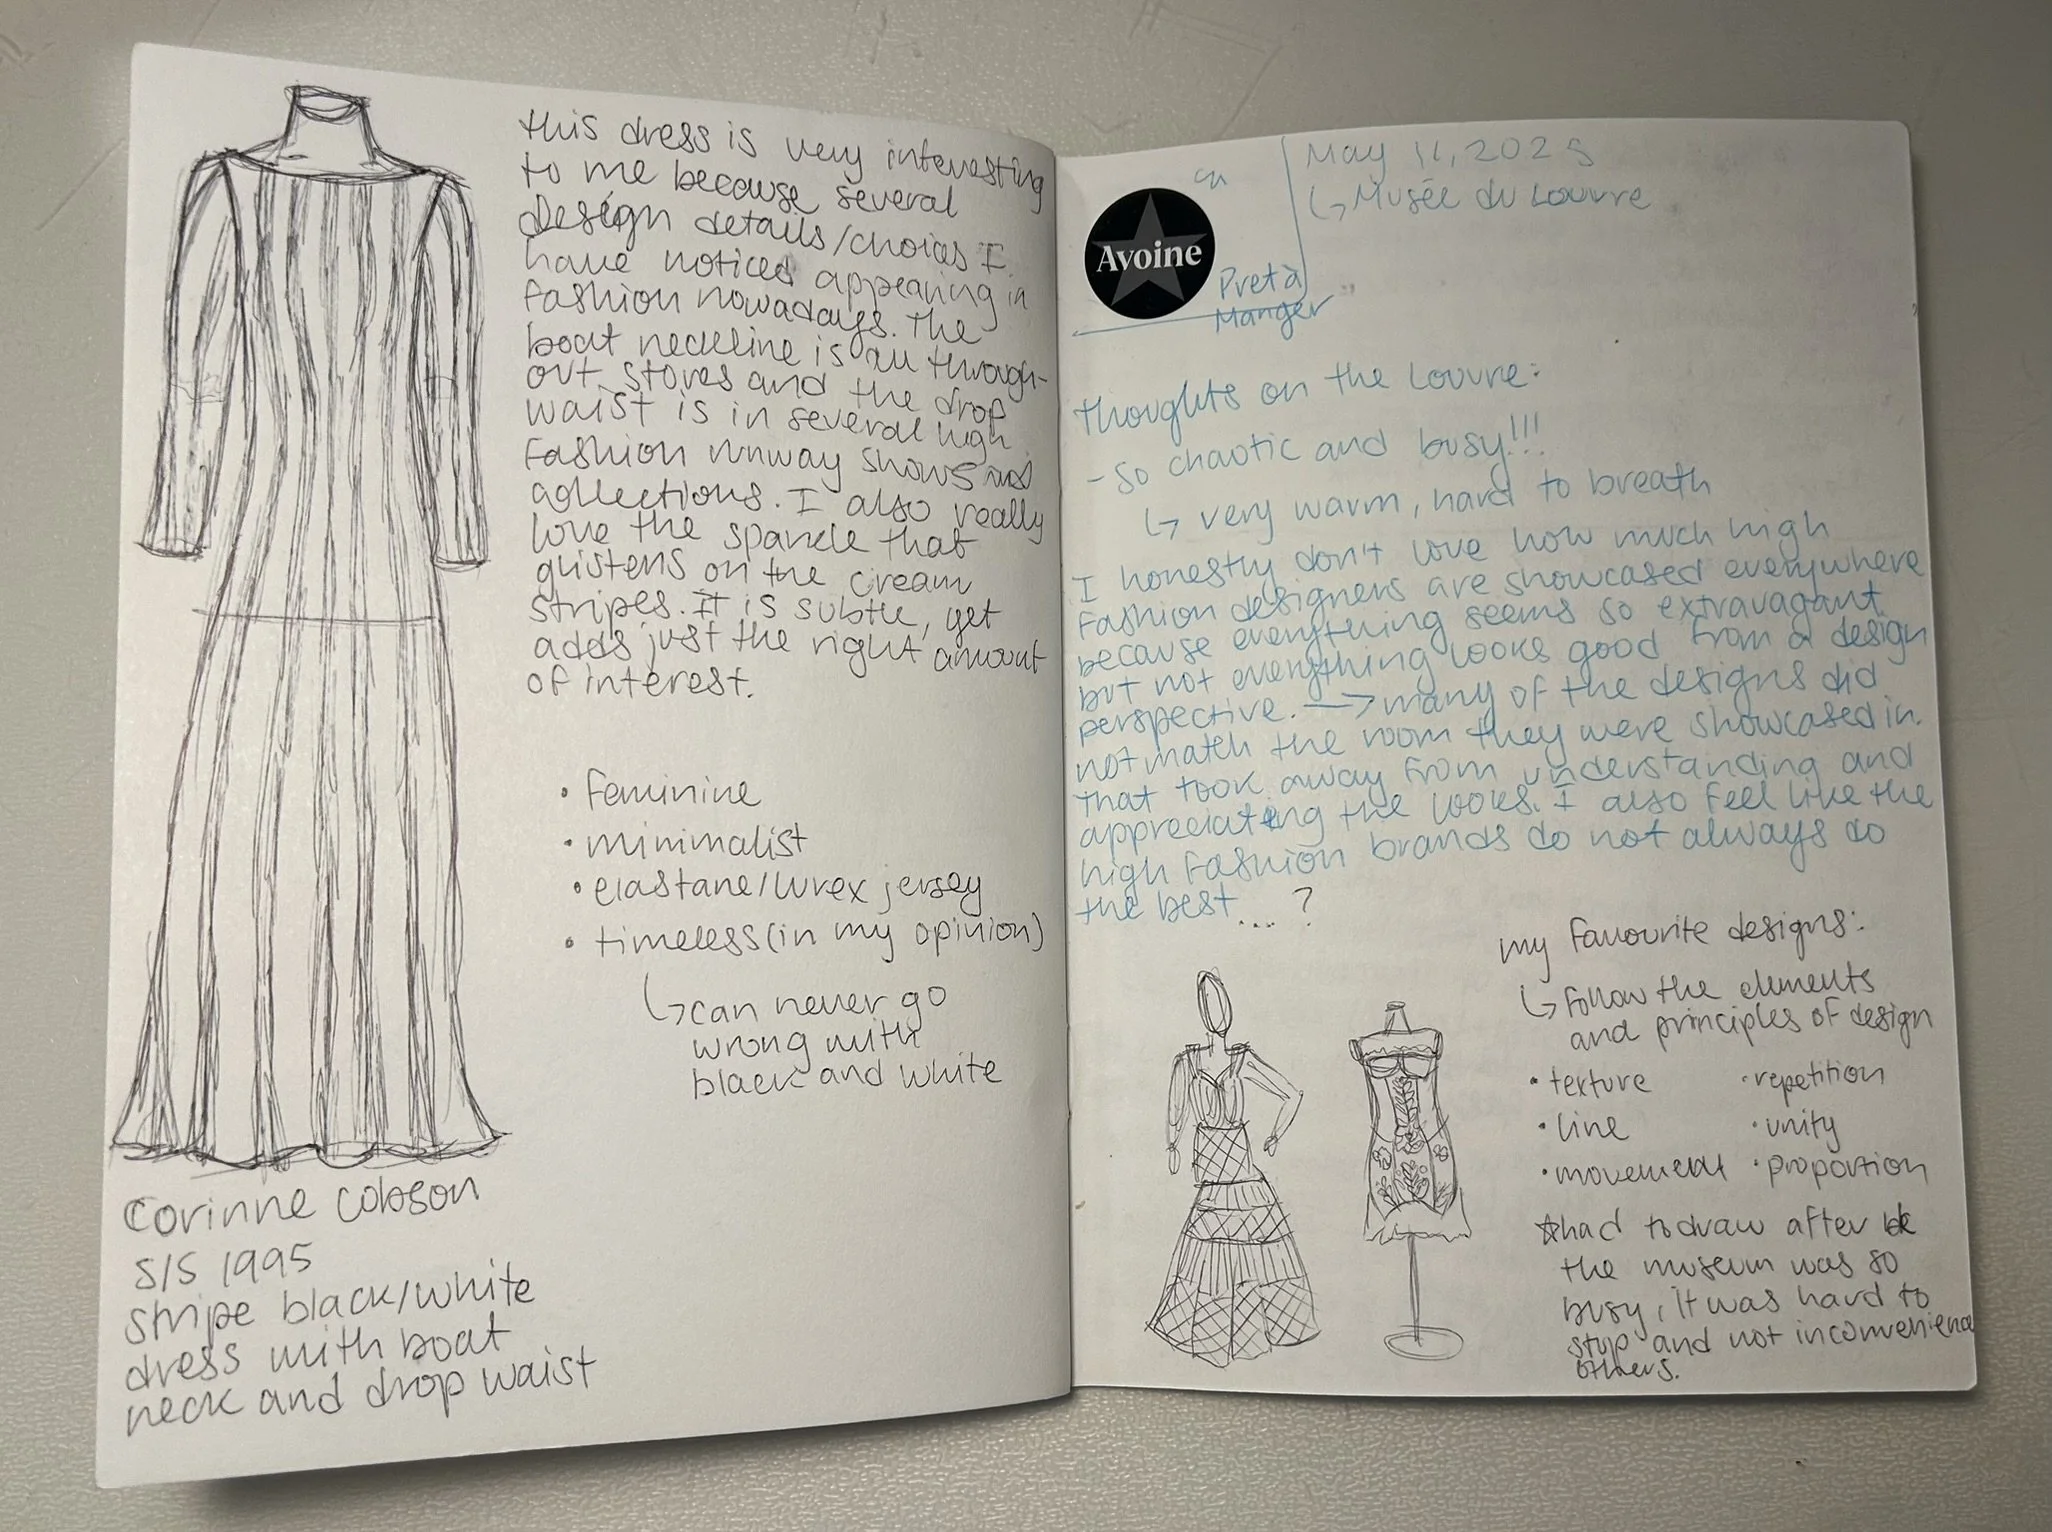 this dress is very interesting
to me because several
design details/choices I
have noticed appearing in
fashion nowadays. The
boat neckline is all through-
out stores and the drop
waist is in several high
fashion runway shows and
collections. I also really
love the sparkle that
glistens on the cream
stripes. It is subtle, yet
adds just the right amount
of interest.
• feminine
• minimalist
• elastane/lurex jersey
• timeless (in my opinion)
↳ can never go
wrong with
black and white
Corinne Cobson
S/S 1995
stripe black/white
dress with boat
neck and drop waist
May 11, 2025
↳ Musée du Louvre
Avoine
Pret à
Manger
thoughts on the Louvre:
- so chaotic and busy!!!
↳ very warm, hard to breath
I honestly don't love how much high
fashion designers are showcased everywhere
because everything seems so extravagant
but not everything looks good from a design
perspective. → many of the designs did
not match the room they were showcased in.
that took away from understanding and
appreciating the looks. I also feel like the
high fashion brands do not always do
the best .... ?
my favourite designs:
↳ follow the elements
and principles of design
• texture • repetition
• line • unity
• movement • proportion
☆ had to draw after bc
the museum was so
busy, it was hard to
stop and not inconvenience
others.